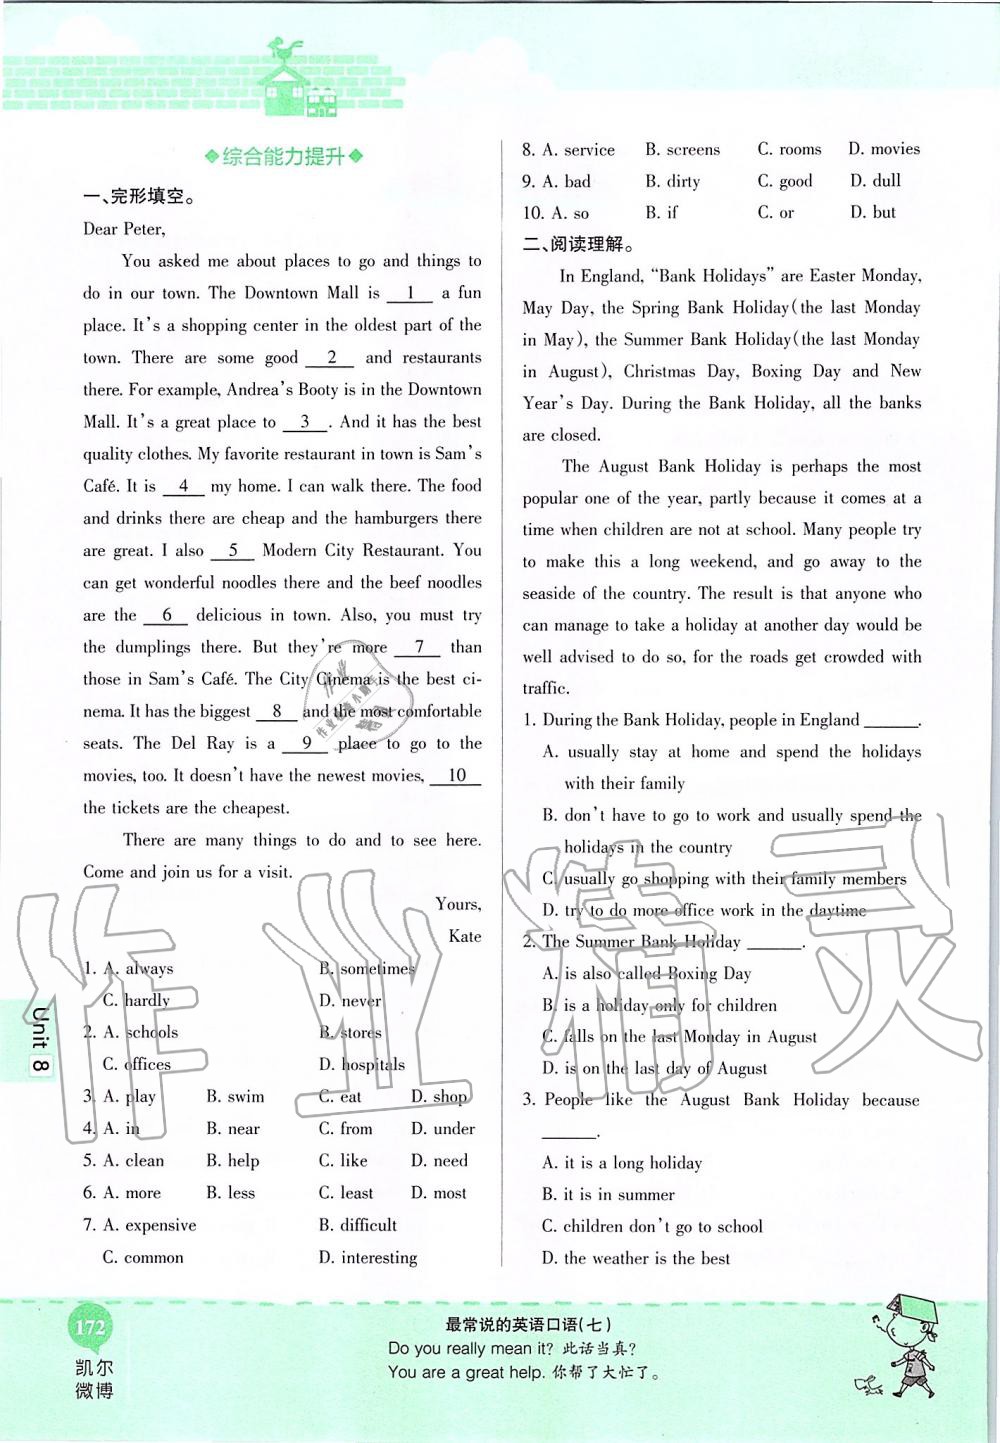 综合能力提升
一、完形填空。
Dear Peter,
You asked me about places to go and things to
do in our town. The Downtown Mall is 1 a fun
place. It's a shopping center in the oldest part of the
town. There are some good 2 and restaurants
there. For example, Andrea's Booty is in the Downtown
Mall. It's a great place to 3 . And it has the best
quality clothes. My favorite restaurant in town is Sam's
Café. It is 4 my home. I can walk there. The food
and drinks there are cheap and the hamburgers there
are great. I also 5 Modern City Restaurant. You
can get wonderful noodles there and the beef noodles
are the 6 delicious in town. Also, you must try
the dumplings there. But they're more 7 than
those in Sam's Café. The City Cinema is the best ci-
nema. It has the biggest 8 and the most comfortable
seats. The Del Ray is a 9 place to go to the
movies, too. It doesn't have the newest movies, 10
the tickets are the cheapest.
There are many things to do and to see here.
Come and join us for a visit.
Yours,
Kate
1. A. always B. sometimes
C. hardly D. never
2. A. schools B. stores
C. offices D. hospitals
3. A. play B. swim C. eat D. shop
4. A. in B. near C. from D. under
5. A. clean B. help C. like D. need
6. A. more B. less C. least D. most
7. A. expensive B. difficult
C. common D. interesting
8. A. service B. screens C. rooms D. movies
9. A. bad B. dirty C. good D. dull
10. A. so B. if C. or D. but
二、阅读理解。
In England, "Bank Holidays" are Easter Monday,
May Day, the Spring Bank Holiday(the last Monday
in May), the Summer Bank Holiday(the last Monday
in August), Christmas Day, Boxing Day and New
Year's Day. During the Bank Holiday, all the banks
are closed.
The August Bank Holiday is perhaps the most
popular one of the year, partly because it comes at a
time when children are not at school. Many people try
to make this a long weekend, and go away to the
seaside of the country. The result is that anyone who
can manage to take a holiday at another day would be
well advised to do so, for the roads get crowded with
traffic.
1. During the Bank Holiday, people in England ______.
A. usually stay at home and spend the holidays
with their family
B. don't have to go to work and usually spend the
holidays in the country
C. usually go shopping with their family members
D. try to do more office work in the daytime
2. The Summer Bank Holiday ______.
A. is also called Boxing Day
B. is a holiday only for children
C. falls on the last Monday in August
D. is on the last day of August
3. People like the August Bank Holiday because
______.
A. it is a long holiday
B. it is in summer
C. children don't go to school
D. the weather is the best
Unit 8
172
凯尔
微博
最常说的英语口语(七)
Do you really mean it? 此话当真?
You are a great help. 你帮了大忙了。
作业精灵